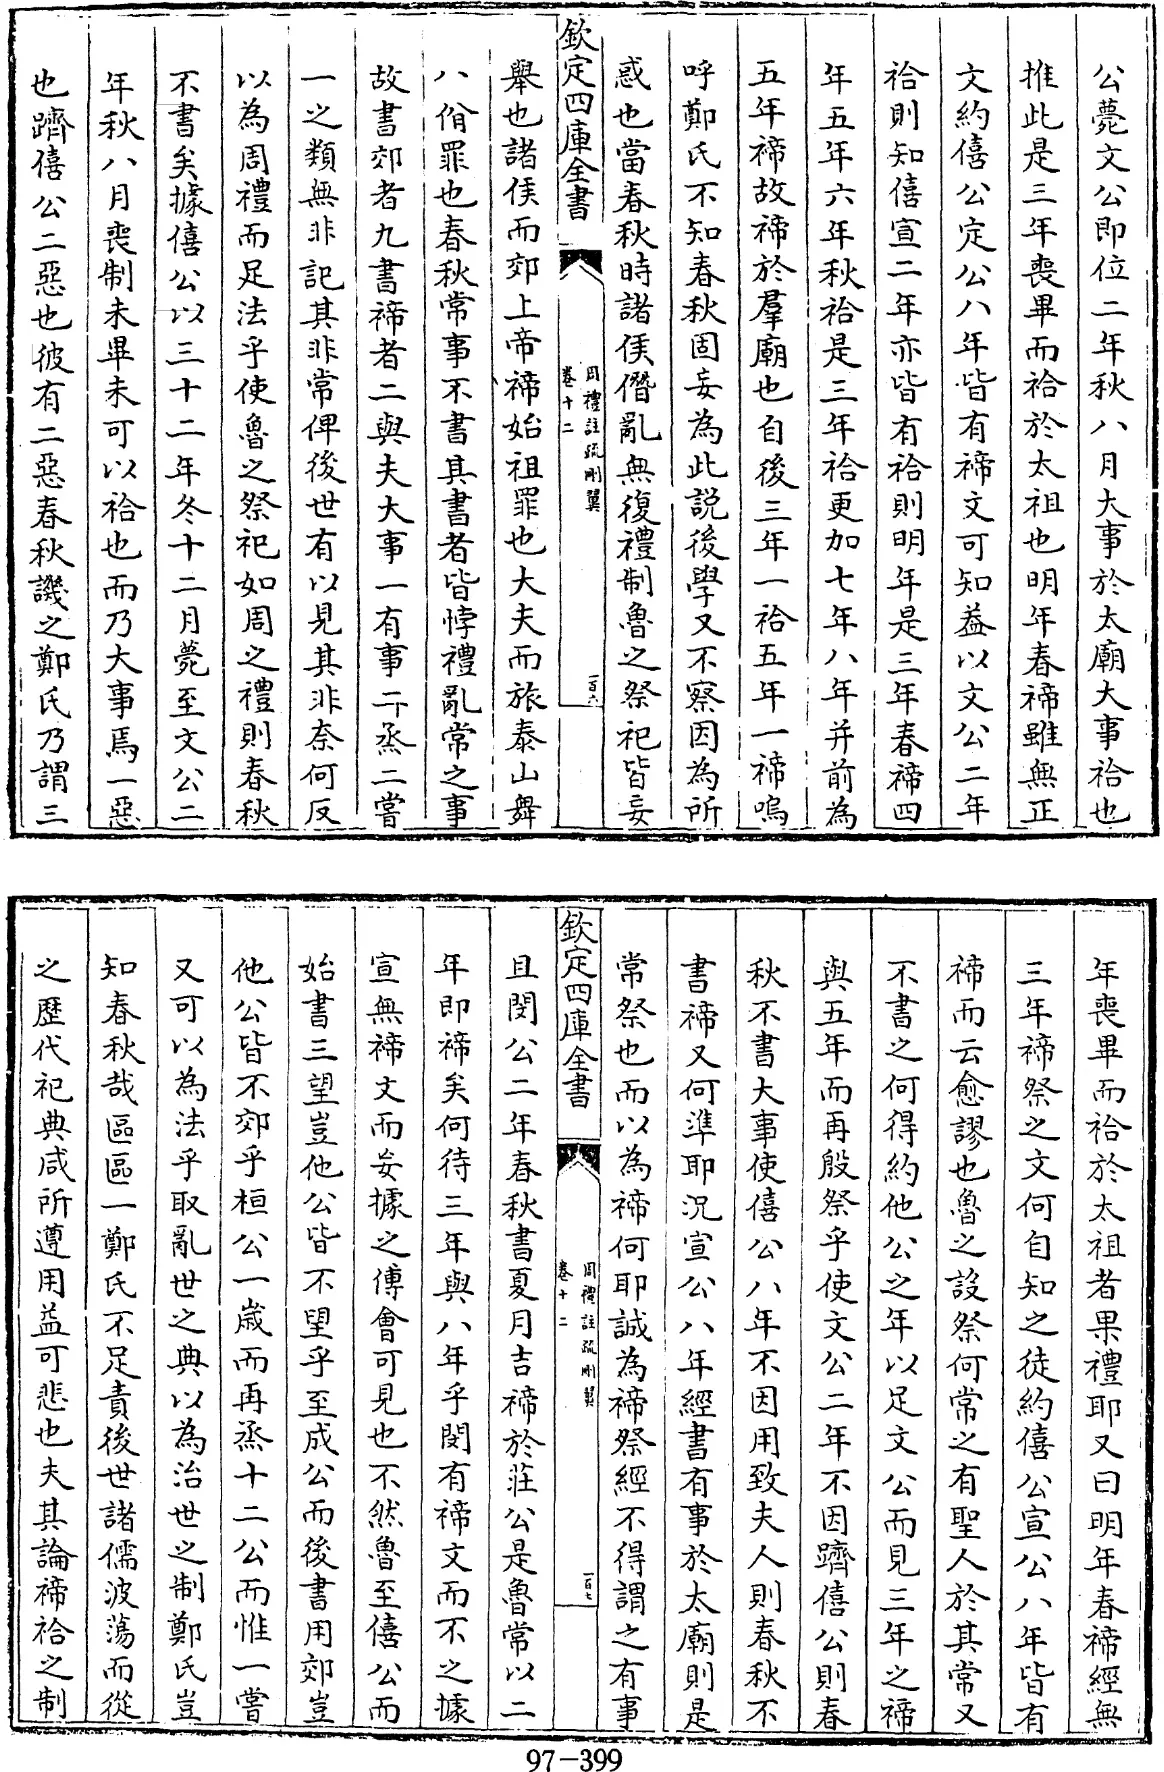 公薨文公即位二年秋八月大事於太廟大事祫也
推此是三年喪畢而祫於太祖也明年春禘雖無正
文約僖公定公八年皆有禘文可知蓋以文公二年
祫則知僖宣二年亦皆有祫則明年是三年春禘四
年五年六年秋祫是三年祫更加七年八年并前為
五年禘故禘於羣廟也自後三年一祫五年一禘嗚
呼鄭氏不知春秋固妄為此說後學又不察因為所
惑也當春秋時諸侯僭亂無復禮制魯之祭祀皆妄
欽定四庫全書
周禮註疏刪翼
卷十二
一百六
舉也諸侯而郊上帝禘始祖罪也大夫而旅泰山舞
八佾罪也春秋常事不書其書者皆悖禮亂常之事
故書郊者九書禘者二與夫大事一有事二烝二嘗
一之類無非記其非常俾後世有以見其非奈何反
以為周禮而足法乎使魯之祭祀如周之禮則春秋
不書矣據僖公以三十二年冬十二月薨至文公二
年秋八月喪制未畢未可以祫也而乃大事焉一惡
也躋僖公二惡也彼有二惡春秋譏之鄭氏乃謂三
年喪畢而祫於太祖者果禮耶又曰明年春禘經無
三年禘祭之文何自知之徒約僖公宣公八年皆有
禘而云愈謬也魯之設祭何常之有聖人於其常又
不書之何得約他公之年以足文公而見三年之禘
與五年而再殷祭乎使文公二年不因躋僖公則春
秋不書大事使僖公八年不因用致夫人則春秋不
書禘又何準耶況宣公八年經書有事於太廟則是
常祭也而以為禘何耶誠為禘祭經不得謂之有事
欽定四庫全書
周禮註疏刪翼
卷十二
一百七
且閔公二年春秋書夏月吉禘於莊公是魯常以二
年即禘矣何待三年與八年乎閔有禘文而不之據
宣無禘文而妄據之傅會可見也不然魯至僖公而
始書三望豈他公皆不望乎至成公而後書用郊豈
他公皆不郊乎桓公一歲而再烝十二公而惟一嘗
又可以為法乎取亂世之典以為治世之制鄭氏豈
知春秋哉區區一鄭氏不足責後世諸儒波蕩而從
之歷代祀典咸所遵用益可悲也夫其論禘祫之制
97-399